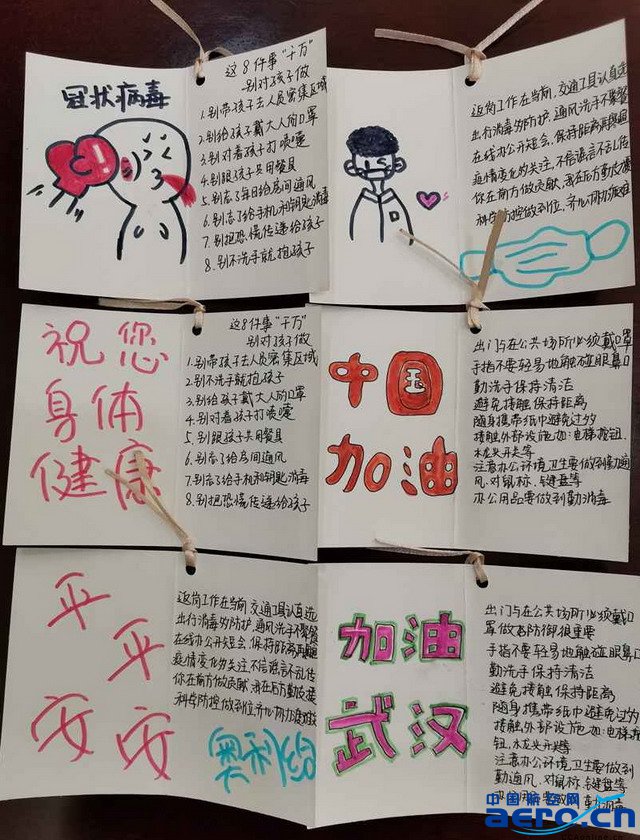 冠状病毒
这8件事"千万"
别对孩子做
1.别带孩子去人员密集区域
2.别给孩子戴大人的口罩
3.别对着孩子打喷嚏
4.别跟孩子共用餐具
5.别忘了每日给房间通风
6.别忘了给手机和钥匙消毒
7.别把恐慌传递给孩子
8.别不洗手就抱孩子
返岗工作在当前,交通工具认真选
出行消毒勿防护,通风洗手不聚餐
在线办公开短会,保持距离再
疫情变化勿关注,不信谣言不乱传
你在前方做贡献,我在后方勤
科学防控做到位,齐心协力
祝您
身体
健康
这8件事"千万"
别对孩子做
1.别带孩子去人员密集区域
2.别不洗手就抱孩子
3.别给孩子戴大人的口罩
4.别对着孩子打喷嚏
5.别跟孩子共用餐具
6.别忘了给房间通风
7.别忘了给手机和钥匙消毒
8.别把恐慌传递给孩子
中国
加油
出门与在公共场所必须戴口罩
手指不要轻易地触碰眼鼻口
勤洗手保持清洁
避免接触保持距离
随身携带纸巾避免过多的
接触外部设施.如:电梯按钮.
水龙头开关等
注意办公环境卫生要做到勤通
风.对鼠标.键盘等
办公用品要做到勤消毒
平
平
安
安
返岗工作在当前,交通工具认真选
出行消毒勿防护,通风洗手不聚餐
在线办公开短会,保持距离
疫情变化勿关注,不信谣言不乱传
你在前方做贡献,我在后方勤
科学防控做到位,齐心协力
奥利给
加油
武汉
出门与在公共场所必须戴口
罩做好防御很重要
手指不要轻易地触碰眼鼻口
勤洗手保持清洁
避免接触保持距离
随身携带纸巾避免过多的
接触外部设施.如:电梯按
钮.水龙头开关等
注意办公环境卫生要做到
勤通风.对鼠标.键盘等
中国航空网
aero.cn